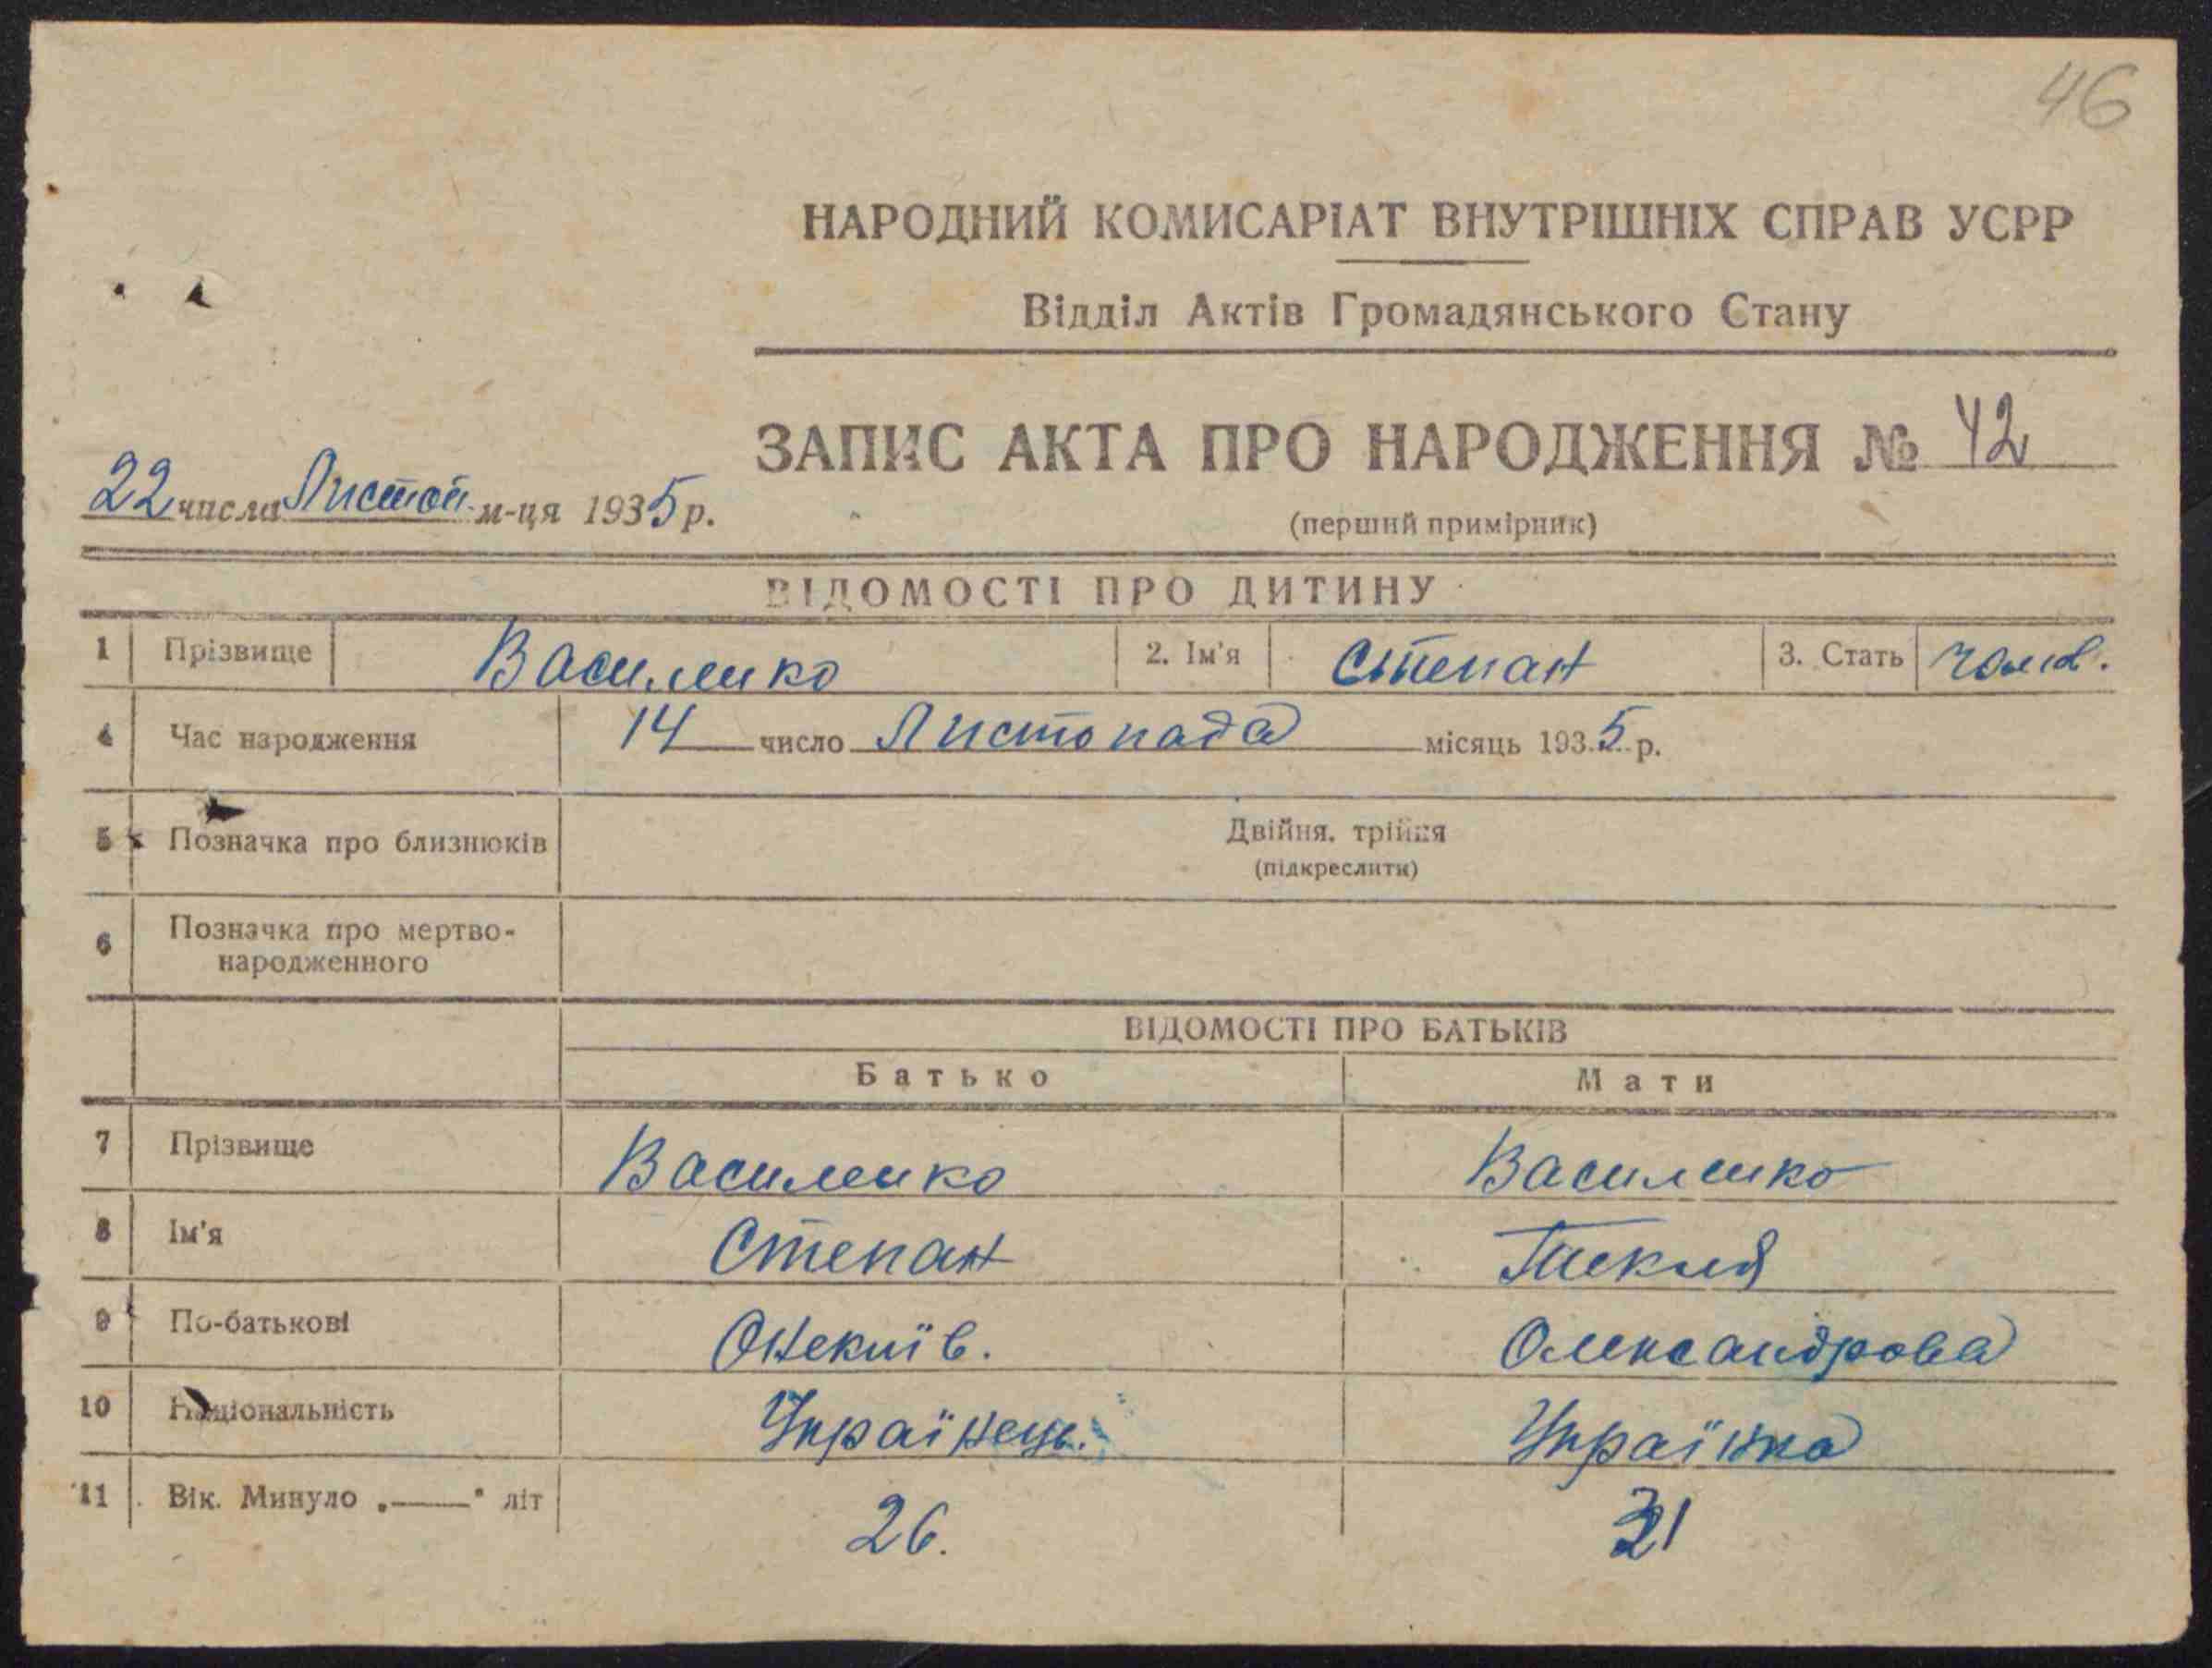 46
НАРОДНИЙ КОМИСАРІАТ ВНУТРІШНІХ СПРАВ УСРР
Відділ Актів Громадянського Стану
ЗАПИС АКТА ПРО НАРОДЖЕННЯ № 42
22 числа Листоп. м-ця 1935 р.
(перший примірник)
ВІДОМОСТІ ПРО ДИТИНУ
1 Прізвище Василенко 2. Ім'я Степан 3. Стать чолов.
4 Час народження 14 число Листопада місяць 1935 р.
5 Позначка про близнюків Двійня, трійня
(підкреслити)
6 Позначка про мертво-
народженного
ВІДОМОСТІ ПРО БАТЬКІВ
Батько Мати
7 Прізвище Василенко Василенко
8 Ім'я Степан Текля
9 По-батькові Олександрова
10 Національність Українець. Українка
11 Вік. Минуло „—“ літ 26. 31